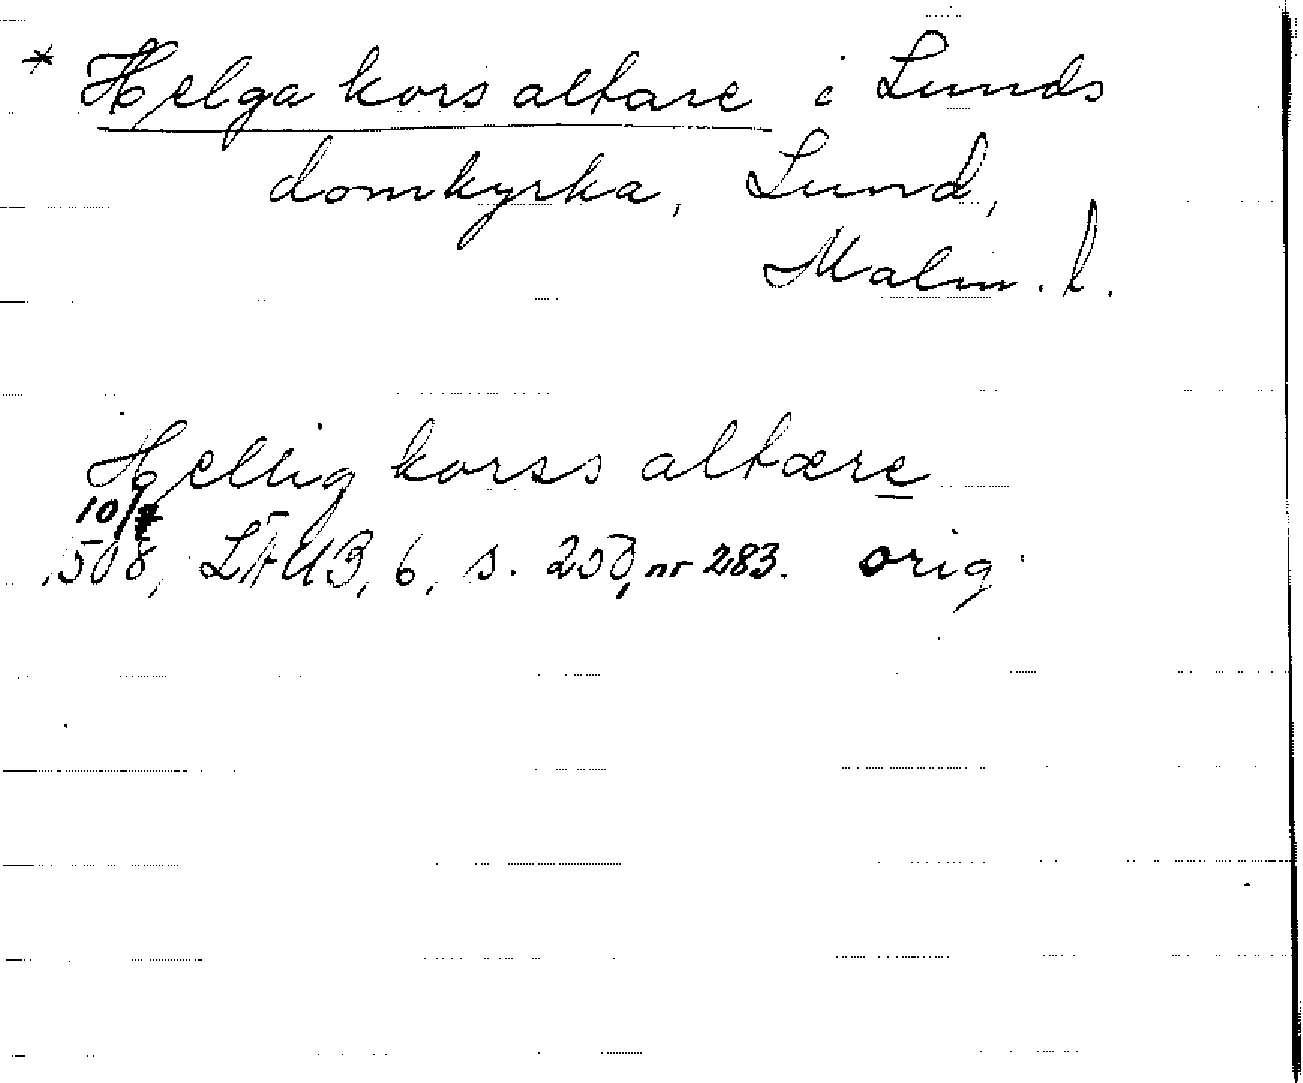 * Helga kors altare i Lunds
domkyrka, Lund,
Malm. l.
Hellig korss altære
10/7
1508, LÄUB, 6, s. 250, nr 283. orig.